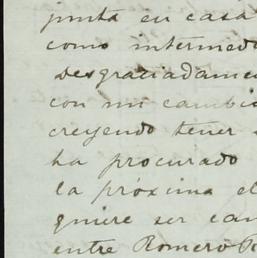 junta en casa
como intermed
Desgraciadame
con mi cambi
creyendo tener
ha procurado
la próxima el
quiere ser can
entre Romero R